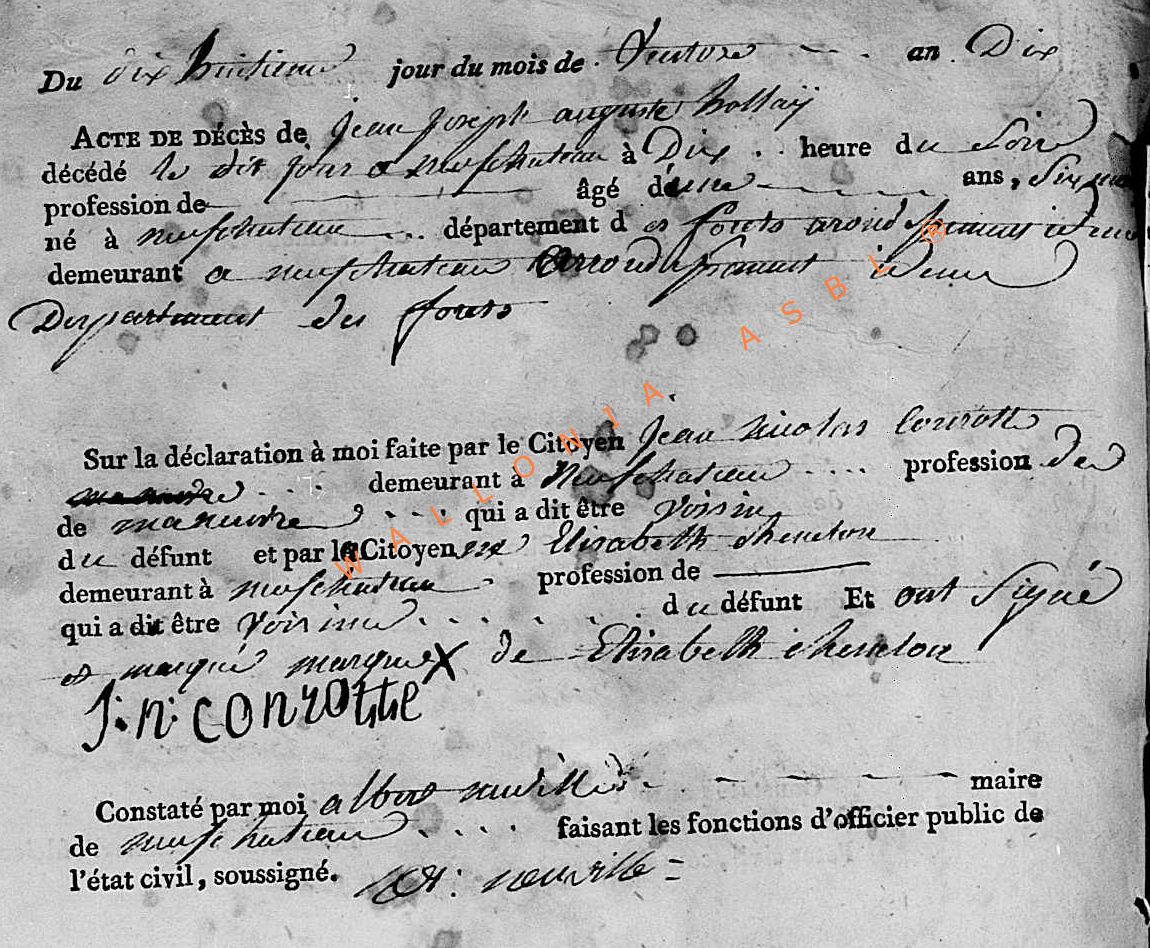 Du dix huitieme jour du mois de Ventose an Dix
ACTE DE DÉCÈS de Jean Joseph auguste hollaÿ
décédé le dit jour a neufchateau à Dix heure du Soir
profession de âgé d'une ans, Six
né à neufchateau département des forets arond
demeurant a neufchateau idem
Departement des forets
Sur la déclaration à moi faite par le Citoyen Jean nicolas Conrotte
demeurant à Neufchateau profession de
de manuvre qui a dit être voisin
du défunt et par le Citoyenne Elisabeth
demeurant à neufchateau profession de
qui a dit être voisine du défunt Et ont Signé
et marqué marque X de Elisabeth
J: n: conrotte
Constaté par moi maire
de neufchateau faisant les fonctions d'officier public de
l'état civil, soussigné. neuville =
WALLONIA ASBL ®